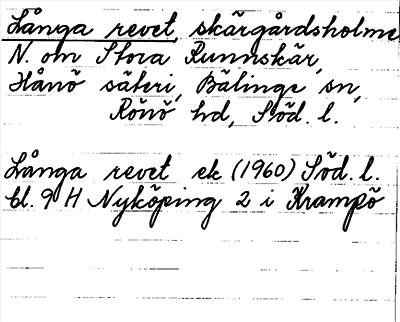 Långa revet, skärgårdsholme
N. om Stora Runnskär,
Hånö säteri, Bälinge sn,
Rönö hd, Söd. l.
Långa revet ek (1960) Söd. l.
bl. 9 H Nyköping 2 i Krampö